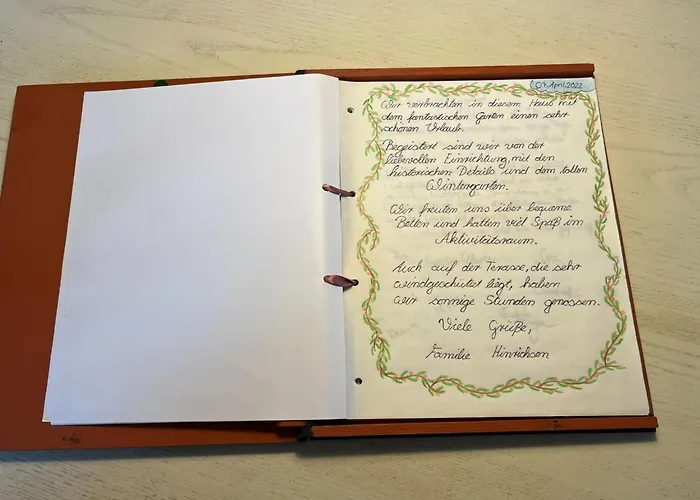 07. April 2022
Wir verbrachten in diesem Haus mit
dem fantastischen Garten einen sehr
schönen Urlaub.
Begeistert sind wir von der
liebevollen Einrichtung, mit den
historischen Details und dem tollen
Wintergarten.
Wir freuten uns über bequeme
Betten und hatten viel Spaß im
Aktivitätsraum.
Auch auf der Terasse, die sehr
windgeschützt liegt, haben
wir sonnige Stunden genossen.
Viele Grüße,
Familie Hinrichsen